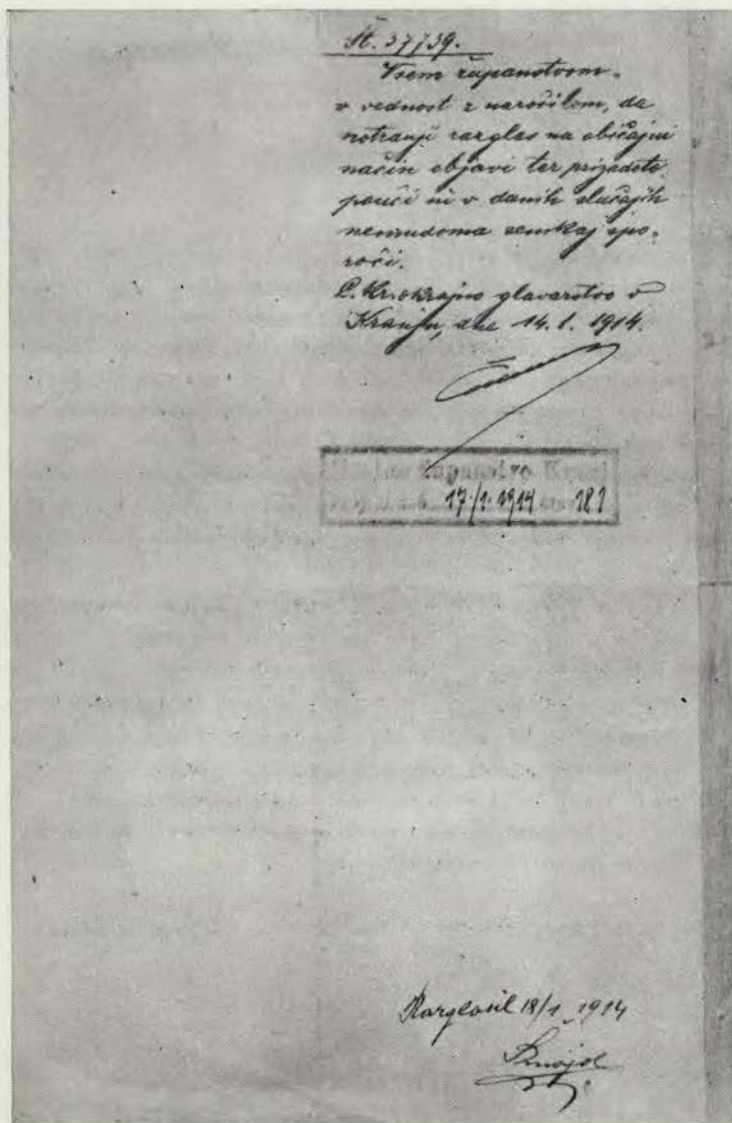 Št. 37739.
Vsem županstvom
v vednost z naročilom, da
notranji razglas na običajni
način objavi ter prizadete
pouči in v danih slučajih
nemudoma semkaj spo-
roči.
C. kr. okrajno glavarstvo v
Kranju, dne 14. 1. 1914.
županstvo Kranj
17./1. 1914 181
Razglasil 18/1 1914